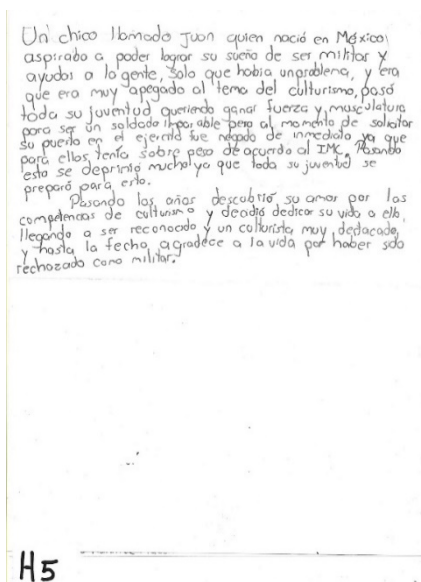 Un chico llamado Juan quien nació en México,
aspiraba a poder lograr su sueño de ser militar y
ayudar a la gente, solo que habia un problema, y era
que era muy apegado al tema del culturismo, pasó
toda su juventud queriendo ganar fuerza y musculatura
para ser un soldado imparable pero al momento de solicitar
su puesto en el ejercito fue negado de inmediato ya que
para ellos tenía sobre peso de acuerdo al IMC. Pasando
esto se deprimió mucho ya que toda su juventud se
preparó para esto.
Pasando los años descubrió su amor por las
competencias de culturismo y decidió dedicar su vida a ello,
llegando a ser reconocido y un culturista muy dedacado,
y hasta la fecha agradece a la vida por haber sido
rechazado como militar.
H5